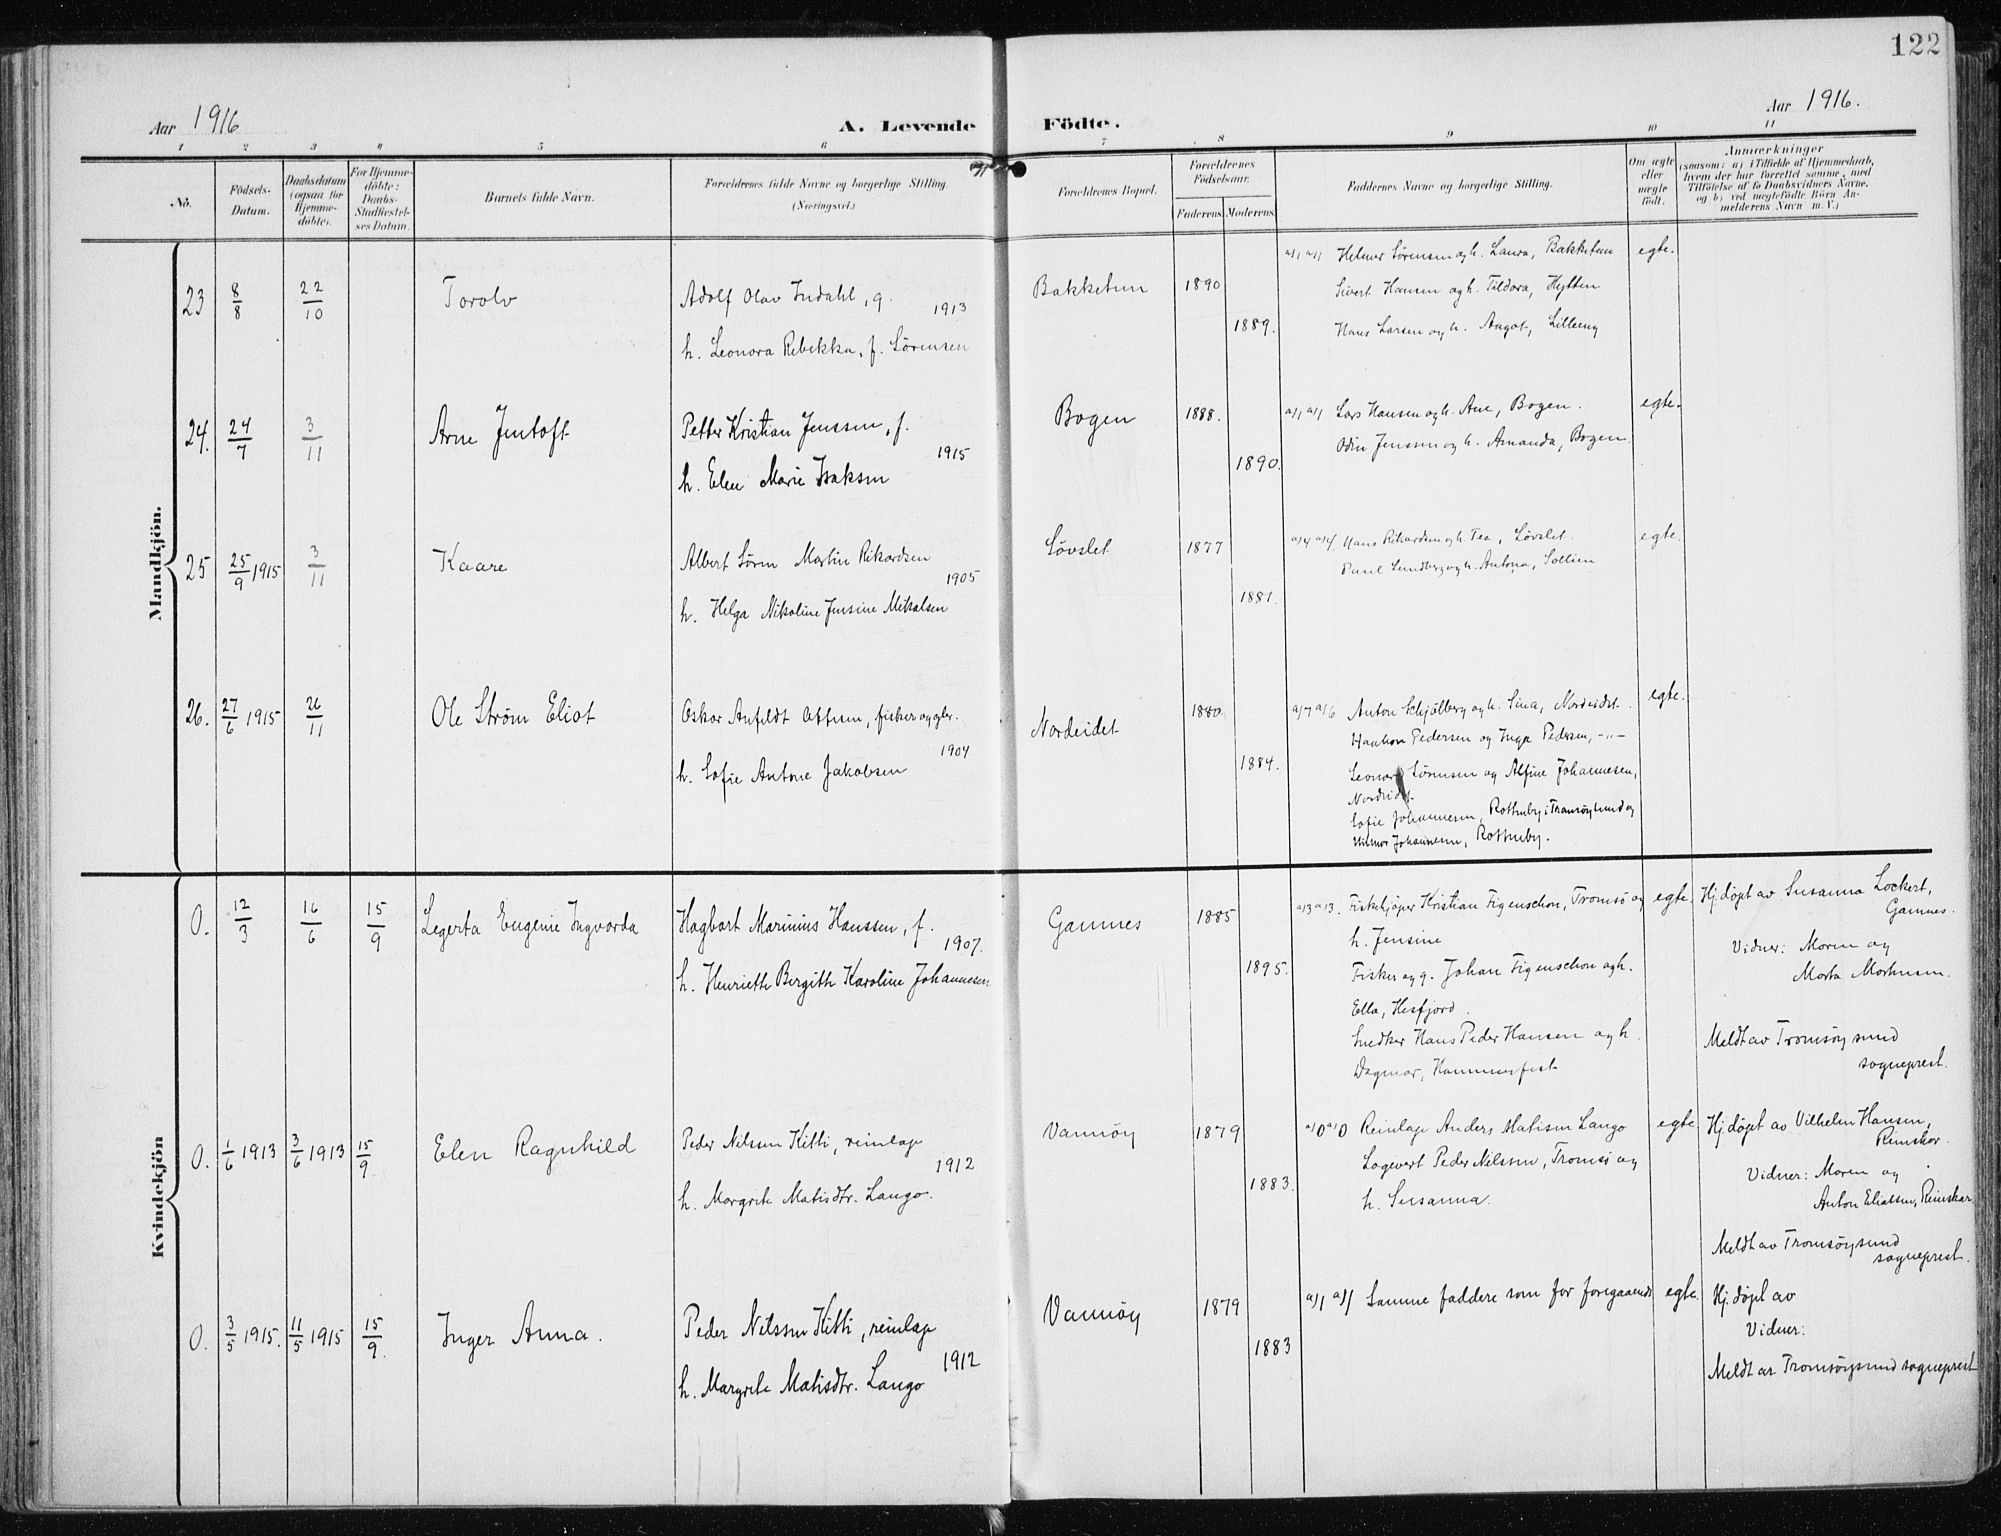 122
Aar 1916
A. Levende Födte.
Aar 1916.
1 2 3 4 5 6 7 8 9 10 11
No.
Födsels-
Datum.
Daabsdatum
(ogsaa for
Hjemme-
döbte).
For Hjemme-
döbte:
Daabs-
Stadfæstel-
ses Datum.
Barnets fulde Navn.
Forældrenes fulde Navne og borgerlige Stilling.
(Næringsvei.)
Forældrenes Bopæl.
Forældrenes
Födselsaar.
Faderens. Moderens.
Faddernes Navne og borgerlige Stilling.
Om ægte
eller
uægte
födt.
Anmærkninger
(saasom: a) i Tilfælde af Hjemmedaab,
hvem der har forrettet samme, med
Tilföielse af to Daabsvidners Navne.
og b) ved uægtefödte Börn An-
melderens Navn m. V.)
Mandkjön.
23 8/8 22/10 Torolv
Adolf Olav Indahl, g.
1913
h. Leonora Rebekka, f. Sörensen
Bakketun 1890
1889.
a/1 a/1 Helmer Sörensen og h. Laura, Bakketun
Sivert Hansen og h. Tildora, Hytten
Hans Larsen og h. Aagot, Lilleng
egte.
24. 24/7 3/11 Arne Jentoft
Petter Kristian Jenssen, f.
1915
h. Elen Marie Isaksen
Bogen 1888.
1890.
a/1 a/1 Lars Hansen og h. Ane, Bogen.
Odin Jenssen og h. Amanda, Bogen.
egte.
25 25/9 1915 3/11 Kaare
Albert Sören Martin Rikardsen
1905
h. Helga Nikoline Jensine Mikalsen
Lövslet 1877
1881.
a/4 a/4 Hans Rikardsen og h. Tea, Lövslet.
Paul Lundberg og h. Antona, Sollien
egte.
26. 27/6 1915 26/11 Ole Ström Eliot
Oskar Anfeldt Ottesen, fisker og gbr.
1904
h. Sofie Antone Jakobsen
Nordeidet 1880
1884.
a/7 a/6 Anton Schjölberg og h. Sina, Nordeidet.
Haakon Pedersen og Inga Pedersen, -"-
Leonard Sörensen og Alfine Johannesen,
Nordeidet.
Sofie Johannesen, Rottenby i Tromsöysund og
Hilmar Johannesen, Rottenby.
egte.
Kvindekjön
0. 12/3 16/6 15/9 Segerta Eugenie Ingvarda
Hagbart Marinius Hanssen, f.
1907.
h. Henriette Bergitte Karoline Johannesen
Gamnes 1885
1895.
a/3 a/3. Fiskekjöper Kristian Figenschou, Tromsö og
h. Jensine
Fisker og g. Johan Figenschou og h.
Ella, Hesfjord.
Snedker Hans Peder Hansen og h.
Dagmar, Hammerfest
egte.
Hj. döpt av Susanna Lockert,
Gamnes.
Vidner: Moren og
Marta Mortensen.
Meldt av Tromsöysund
sogneprest.
0. 1/6 1913 3/6 1913 15/9. Elen Ragnhild
Peder Nilssen Kitti, reinlap
1912
h. Margrete Matisdtr. Lango.
Vannöy 1879
1883.
a/0 a/0 Reinlap Anders Matisen Lango
Logivert Peder Nilssen, Tromsö og
h. Susanna.
egte
Hj. döpt av Vilhelm Hansen,
Reinskar.
Vidner: Moren og
Anton Eliassen, Reinskar.
Meldt av Tromsöysund
sogneprest.
0. 3/5 1915. 11/5 1915 15/9. Inger Anna.
Peder Nilssen Kitti, reinlap
1912
h. Margrete Matisdtr. Lango
Vannöy 1879
1883
a/1 a/1 Samme faddere som for foregaaende
egte.
Hj. döpt av
Vidner:
Meldt av Tromsöysund sogneprest